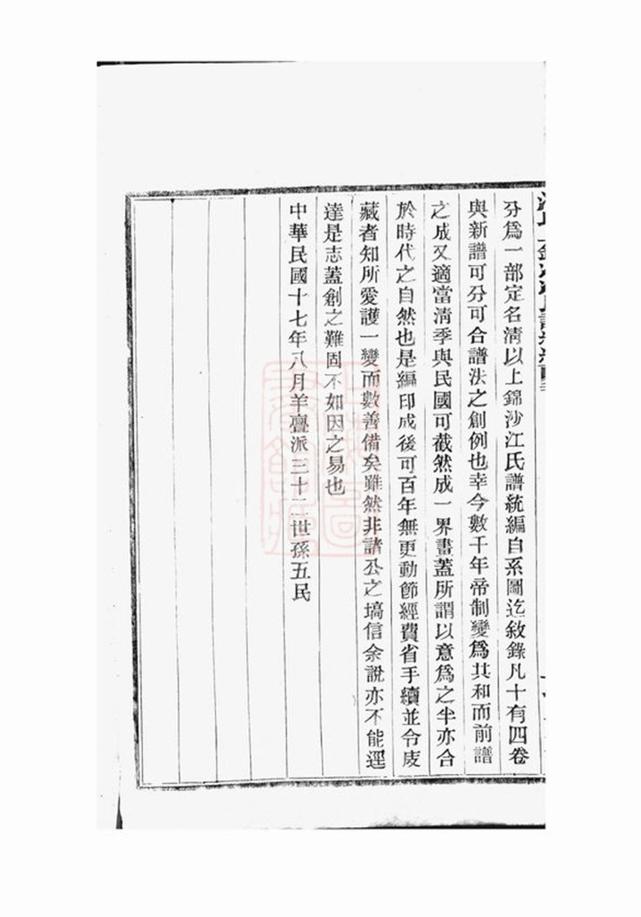 分爲一部定名清以上錦沙江氏譜統編自系圖迄敘錄凡十有四卷
與新譜可分可合譜法之創例也幸今數千年帝制變爲共和而前譜
之成又適當清季與民國可截然成一界畫蓋所謂以意爲之半亦合
於時代之自然也是編印成後可百年無更動節經費省手續並令庋
藏者知所愛護一變而數善備矣雖然非諸公之塙信余說亦不能逕
達是志蓋創之難固不如因之易也
中華民國十七年八月羊疊派三十二世孫五民